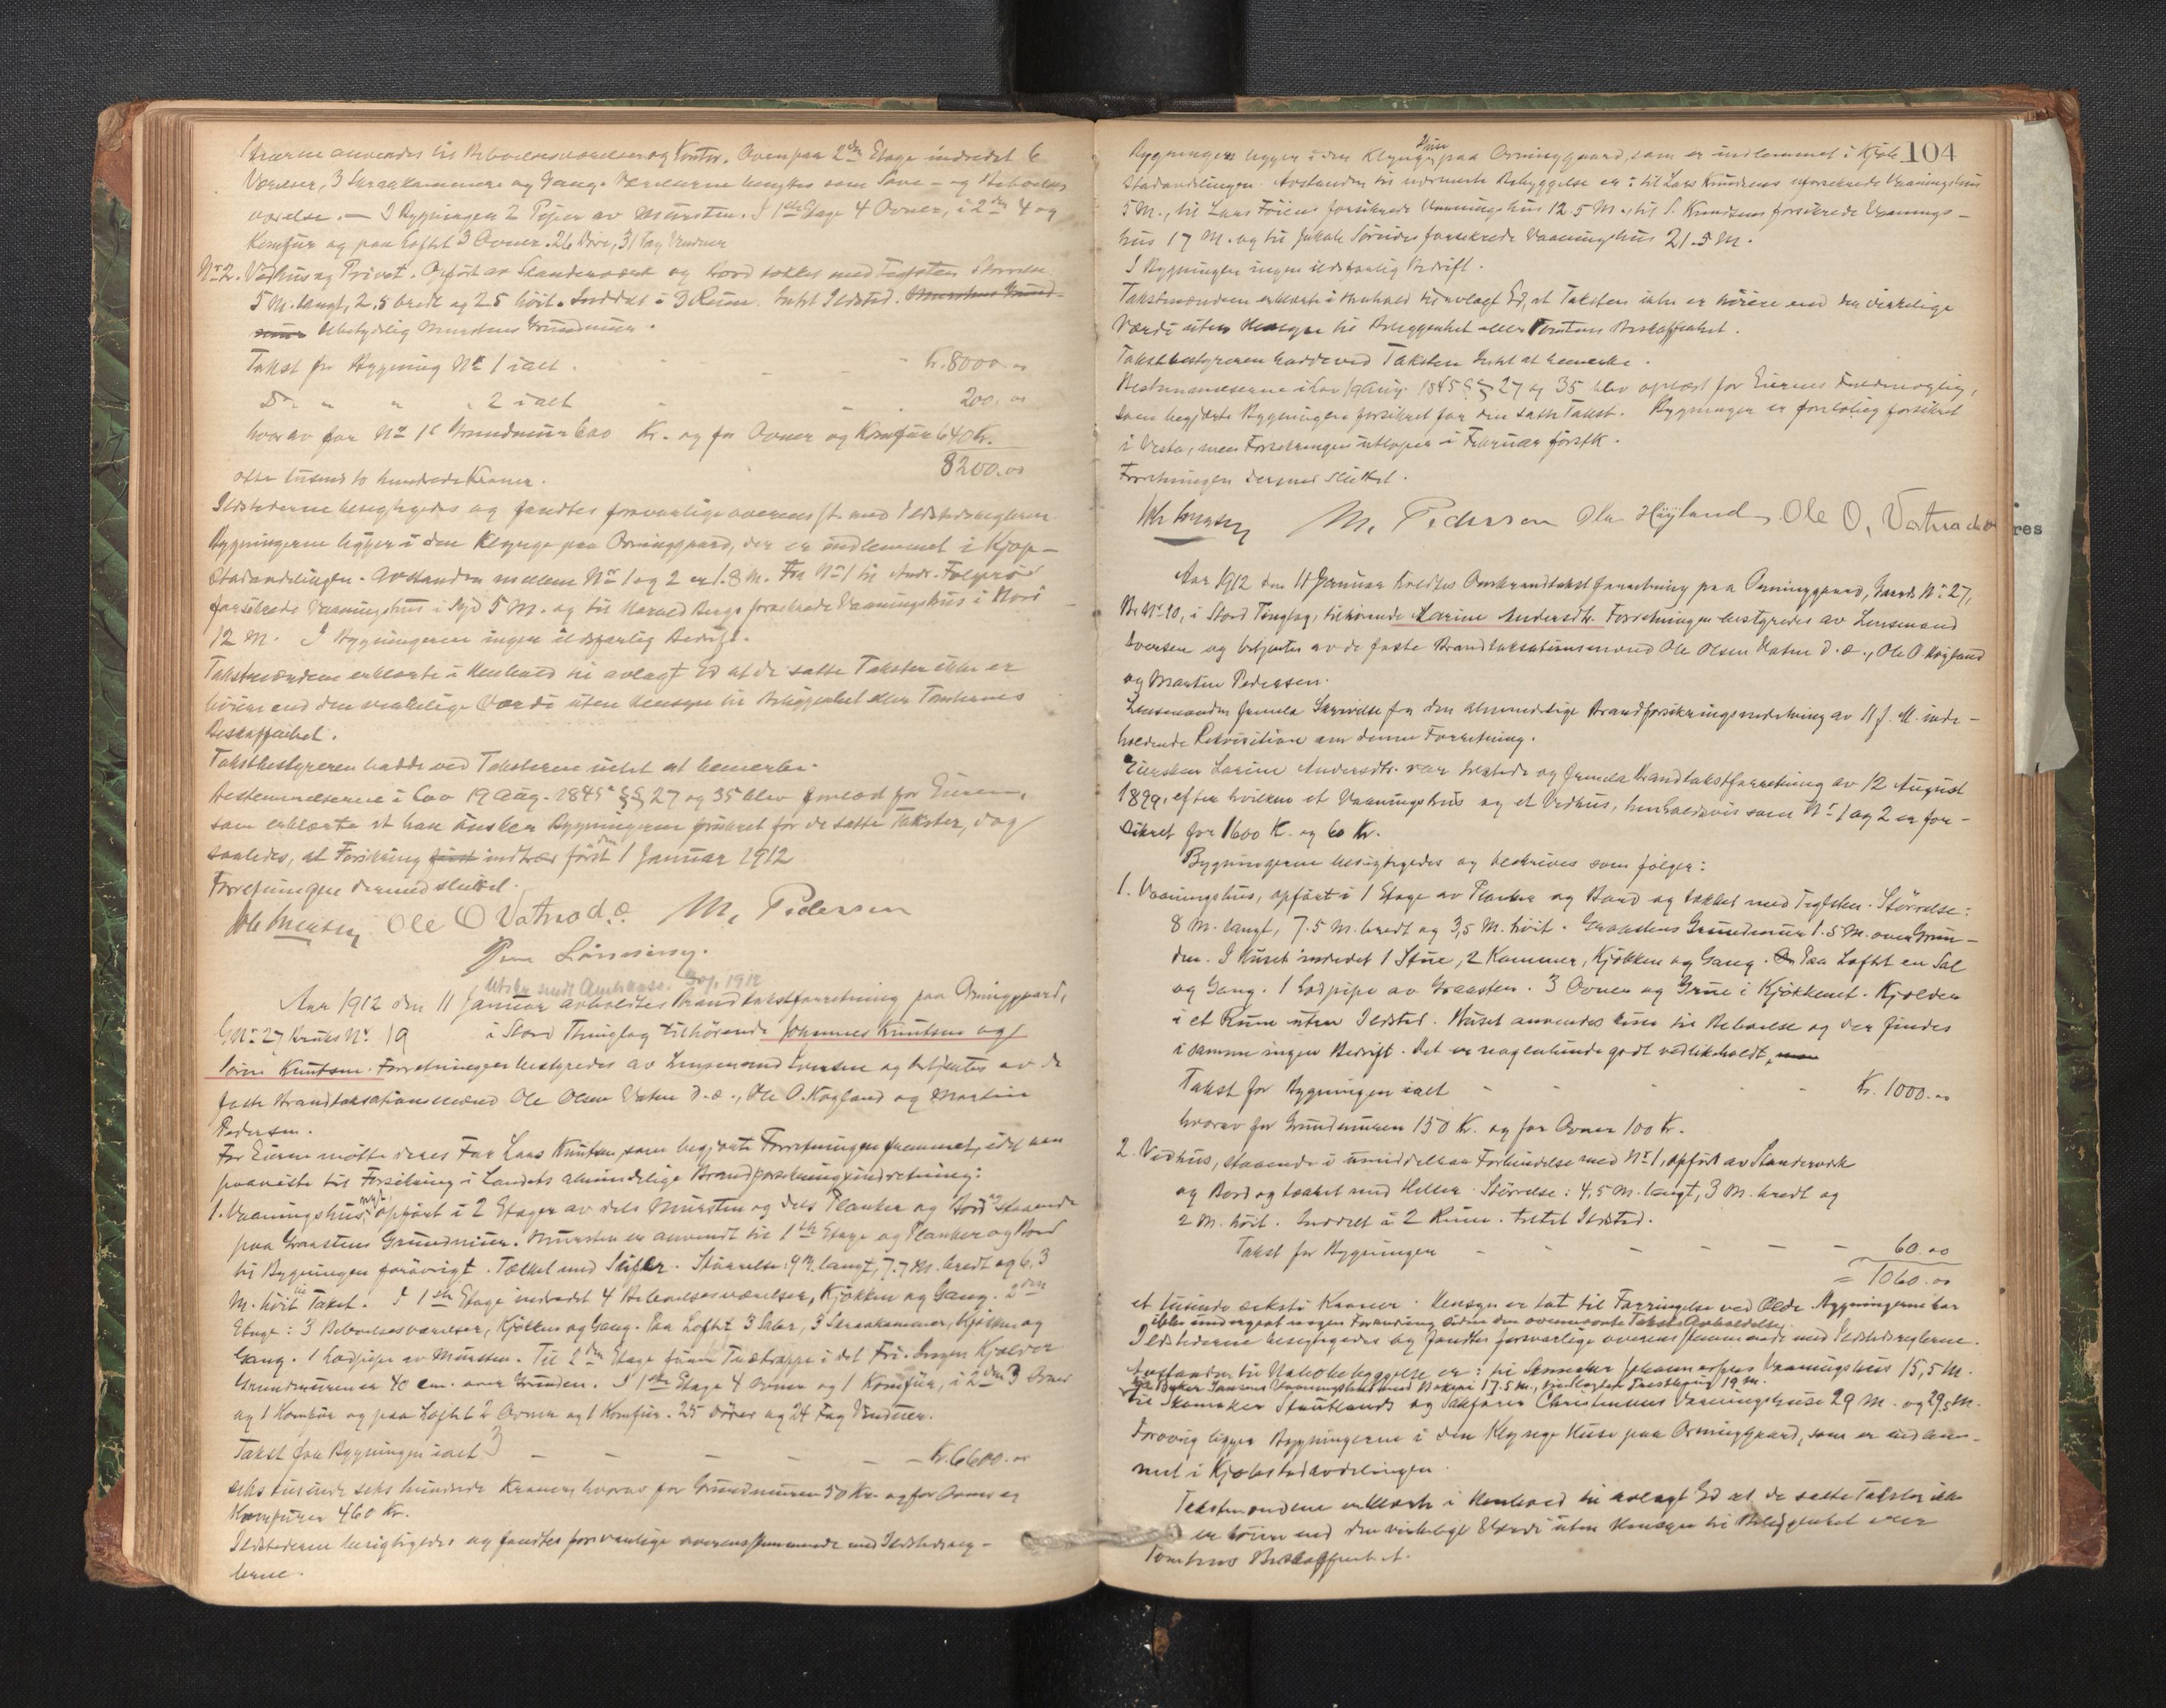 anvendes til Beboelsesværelser og Kontor. Ovenpaa 2den Etage indredet 6
Værelser, 3 Skraakammere og Gang. Værelserne benyttes som Sove- og Beboelses
værelse. — I Bygningen 2 Piper av Mursten. I 1ste Etage 4 Ovner, i 2den 4 og
Komfur og paa Loftet 3 Ovner. 26 Döre, 31 Fag Vinduer
No 2. Vedhus og Privet. Opfört av Standerværk og bord tækket med Teglsten Störrelse
5 M. langt, 2,5 bredt og 2.5 höit. Inddelt i 3 Rum. Intet Ildsted. Murstens Grund-
mur Ubetydelig Murstens Grundmur.
Takst for Bygning No 1 ialt . - - - Kr. 8000.00
Do " " " 2 ialt - - - 200.00
hvorav for No 1's Grundmur 600 Kr. og for Ovner og Komfur 640 Kr.
8200.00
otte tusend to hundrede Kroner.
Ildstederne besigtigedes og fandtes forsvarlige overensst. med Ildstedsreglerne
Bygningerne ligger i den Klynge paa Orninggaard, der er indlemmet i Kjöp-
stadavdelingen. Avstanden mellem No 1 og 2 er 1.8 M. Fra No 1 til Andr. Folgerö
forsikrede Vaaningshus i Syd 5 M. og til Harald Bergs forsikrede Vaaningshus i Nord
12 M. I Bygningerne ingen ildsfarlig Bedrift.
Takstmændene erklærte i Henhold til avlagt Ed at de satte Takster ikke er
höiere end den virkelige Værdi uten Hensyn til Beliggenhet eller Tomternes
Beskaffenhet.
Takstbestyreren hadde ved Taksterne intet at bemerke.
Bestemmelserne i Lov 19 Aug. 1845 §§ 27 og 35 blev forelæst for Eieren,
som erklærte at han önsker Bygningerne forsikret for de satte Takster, dog
saaledes, at Forsikring först indtræder först den 1 Januar 1912
Forretningen dermed sluttet.
Ole O Vatna d.e. M. Pedersen
Lönning.
Utskr. sendt Amtmand. 1912
Aar 1912 den 11 Januar avholdtes Brandtakstforretning paa Orninggaard,
G No 27 Bruks No 19 i Stord Thinglag tilhörende Johannes Knutsen og
Sören Knutsen. Forretningen bestyredes av Lensmand Iversen og betjentes av de
faste Brandtaksationsmænd Ole Olsen Vatne d.e., Ole O. Höyland og Martin
Pedersen.
For Eierne mötte deres Far Lars Knutsen som begjærte Forretningen fremmet, idet han
paaviste til Forsikring i Landets almindelige Brandforsikringsindretning:
1. Vaaningshus, nyt, opfört i 2 Etager av dels Mursten og dels Planker og Bord staaende
paa Graastens Grundmur. Mursten er anvendt til 1ste Etage og Planker og Bord
til Bygningen forövrigt. Tækket med Skifer. Störrelse: 9 M. langt, 7.7 M. bredt og 6,3
M. höit til Taket. I 1ste Etage indredet 4 Beboelsesværelser, Kjökken og Gang. 2den
Etage: 3 Beboelsesværelser, Kjökken og Gang. Paa Loftet 3 Saler, 3 Skraakammer, Kjökken og
Gang. 1 Lodpipe av Mursten. Til 2den Etage förer Trætrappe i det Fri. Ingen Kjælder
Grundmuren er 40 cm. over Grunden. I 1ste Etage 4 Ovner og 1 Komfur, i 2den 3 Ovner
og 1 Komfur og paa Loftet 2 Ovner og 1 Komfur. 25 Dörer og 24 Fag Vinduer.
Takst for Bygningen ialt - - - Kr. 6600.00
seks tusinde seks hundrede Kroner, hvorav for Grundmuren 50 Kr. og for Ovner og
Komfurer 460 Kr.
Ildstederne besigtigedes og fandtes forsvarlige overensstemmende med Ildstedsreg-
lerne.
104
Bygningen ligger i den Klynge Huse paa Orninggaard, som er indlemmet i Kjöb
stadavdelingen. Avstanden til nærmeste Bebyggelse er: til Lars Knudsens uforsikrede Vaaningshus
5 M., til Lars Föiens forsikrede Vaaningshus 12.5 M., til S. Knudsens forsikrede Vaanings-
hus 17 M. og til Jakob Sörvides forsikrede Vaaningshus 21.5 M.
I Bygningen ingen ildsfarlig Bedrift.
Takstmændene erklærte i Henhold til avlagt Ed, at Taksten ikke er höiere end den virkelige
Værdi uten Hensyn til Beliggenhet eller Tomtens Beskaffenhet.
Takstbestyreren hadde ved Taksten intet at bemerke.
Bestemmelserne i Lov 19 Aug. 1845 §§ 27 og 35 blev oplæst for Eiernes Fuldmægtig,
som begjærte Bygningen forsikret for den satte Takst. Bygningen er foreløbig forsikret
i Vesta, men Forsikringen utlöper i Februar förstk.
Forretningen dermed sluttet.
M. Pedersen Ole Höyland Ole O. Vatna d.e.
Aar 1912 den 11 Januar holdtes Ombrandtakstforretning paa Orninggaard, Gaards No 27,
Br No 10, i Stord Tinglag, tilhörende Larine Andersdtr. Forretningen bestyredes av Lensmand
Iversen og betjentes av de faste Brandtaksationsmænd Ole Olsen Vatne d.e., Ole O. Höyland
og Martin Pedersen.
Lensmanden fremla Skrivelse fra den almindelige Brandforsikringsindretning av 11 f. M. inde-
holdende Rekvisition om denne Forretning.
Eiersken Larine Andersdtr. var tilstede og fremla Brandtakstforretning av 12 August
1899, efter hvilken et Vaaningshus og et Vedhus, henholdsvis som No 1 og 2 er for-
sikret for 1600 Kr. og 60 Kr.
Bygningerne besigtigedes og beskrives som fölger:
1. Vaaningshus, opfört i 1 Etage av Planker og Bord og tækket med Teglsten. Störrelse:
8 M. langt, 7.5 M. bredt og 3,5 M. höit. Graastens Grundmur 1.5 M. over Grun-
den. I Huset indredet 1 Stue, 2 Kammer, Kjökken og Gang. Paa Loftet en Sal
og Gang. 1 Lodpipe av Graasten. 3 Ovner og Grue i Kjökkenet. Kjælder
i et Rum uten Ildsted. Huset anvendes kun til Beboelse og der findes
i samme ingen Bedrift. Det er nogenlunde godt vedlikeholdt, men
Takst for Bygningen ialt - - - Kr. 1000.00
hvorav for Grundmuren 150 Kr. og for Ovner 100 Kr.
2. Vedhus, staaende i umiddelbar Forbindelse med No 1, opfört av Standerverk
og Bord og tækket med Heller. Störrelse: 4,5 M. langt, 3 M. bredt og
2 M. höit. Inddelt i 2 Rum. Intet Ildsted.
Takst for Bygningen - - - 60.00
= 1060.00
et tusinde seksti Kroner. Hensyn er tat til Forringelse ved Ælde. Bygningerne har
ikke undergaat nogen Forandring siden den ovennævnte Taksts Avholdelse.
Ildstederne besigtigedes og fandtes forsvarlige overensstemmende med Ildstedsreglerne.
Avstanden til Nabobebyggelse er: til Johannessens Vaaningshus 15,5 M.
til Baker Jansens Vaaningshus med Bakeri 17.5 M., 19 M.
til Skomaker Stautlands og Sakförer Christensens Vaaningshuse 29 M. og 29,5 M.
Forövrig ligger Bygningerne i den Klynge Huse paa Orninggaard, som er indlem-
met i Kjöbstadavdelingen.
Takstmændene erklærte i Henhold til avlagt Ed at de satte Takster ikke
er höiere end den virkelige Værdi uten Hensyn til Beliggenhet eller
Tomternes Beskaffenhet.
res